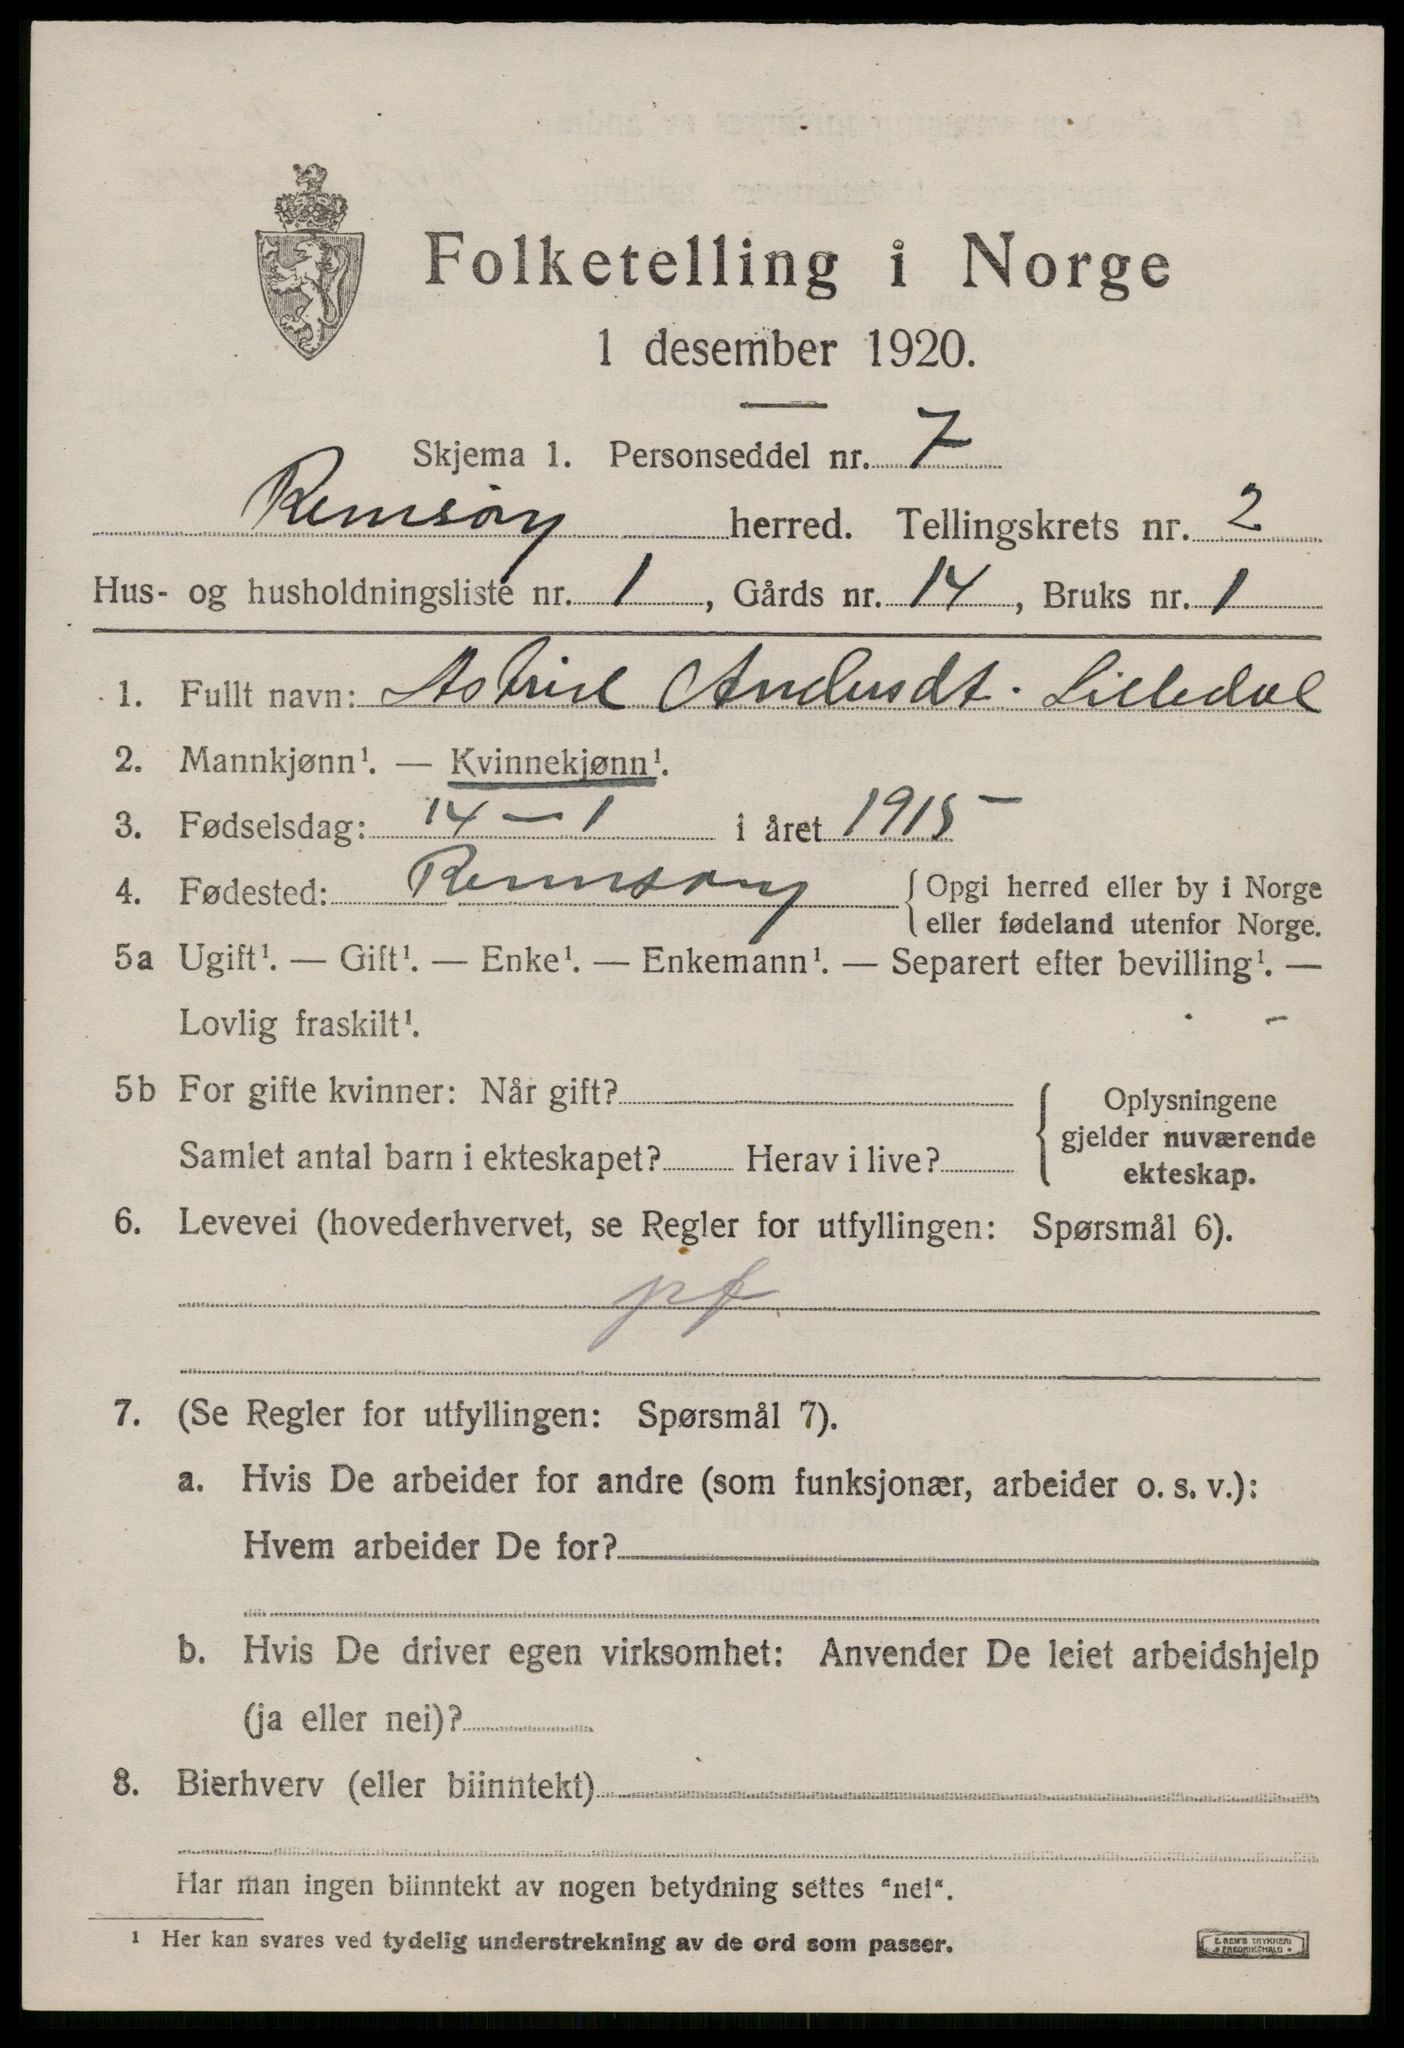 Folketelling i Norge
1 desember 1920.
Skjema 1. Personseddel nr. 7
Remsøy herred. Tellingskrets nr. 2
Hus- og husholdningsliste nr. 1, Gårds nr. 14, Bruks nr. 1
1. Fullt navn: Astrid Andersdt. Lilledal
2. Mannkjønn¹. — Kvinnekjønn¹.
3. Fødselsdag: 14 — 1 i året 1915 —
4. Fødested: Remsøy { Opgi herred eller by i Norge
eller fødeland utenfor Norge.
5a Ugift¹. — Gift¹. — Enke¹. — Enkemann¹. — Separert efter bevilling¹. —
Lovlig fraskilt¹.
5b For gifte kvinner: Når gift?
Samlet antal barn i ekteskapet? Herav i live?
Oplysningene
gjelder nuværende
ekteskap.
6. Levevei (hovederhvervet, se Regler for utfyllingen: Spørsmål 6).
pf.
7. (Se Regler for utfyllingen: Spørsmål 7).
a. Hvis De arbeider for andre (som funksjonær, arbeider o. s. v.):
Hvem arbeider De for?
b. Hvis De driver egen virksomhet: Anvender De leiet arbeidshjelp
(ja eller nei)?
8. Bierhverv (eller biinntekt)
Har man ingen biinntekt av nogen betydning settes "nei".
¹ Her kan svares ved tydelig understrekning av de ord som passer.
E. SEM'S TRYKKERI
FREDRIKSHALD